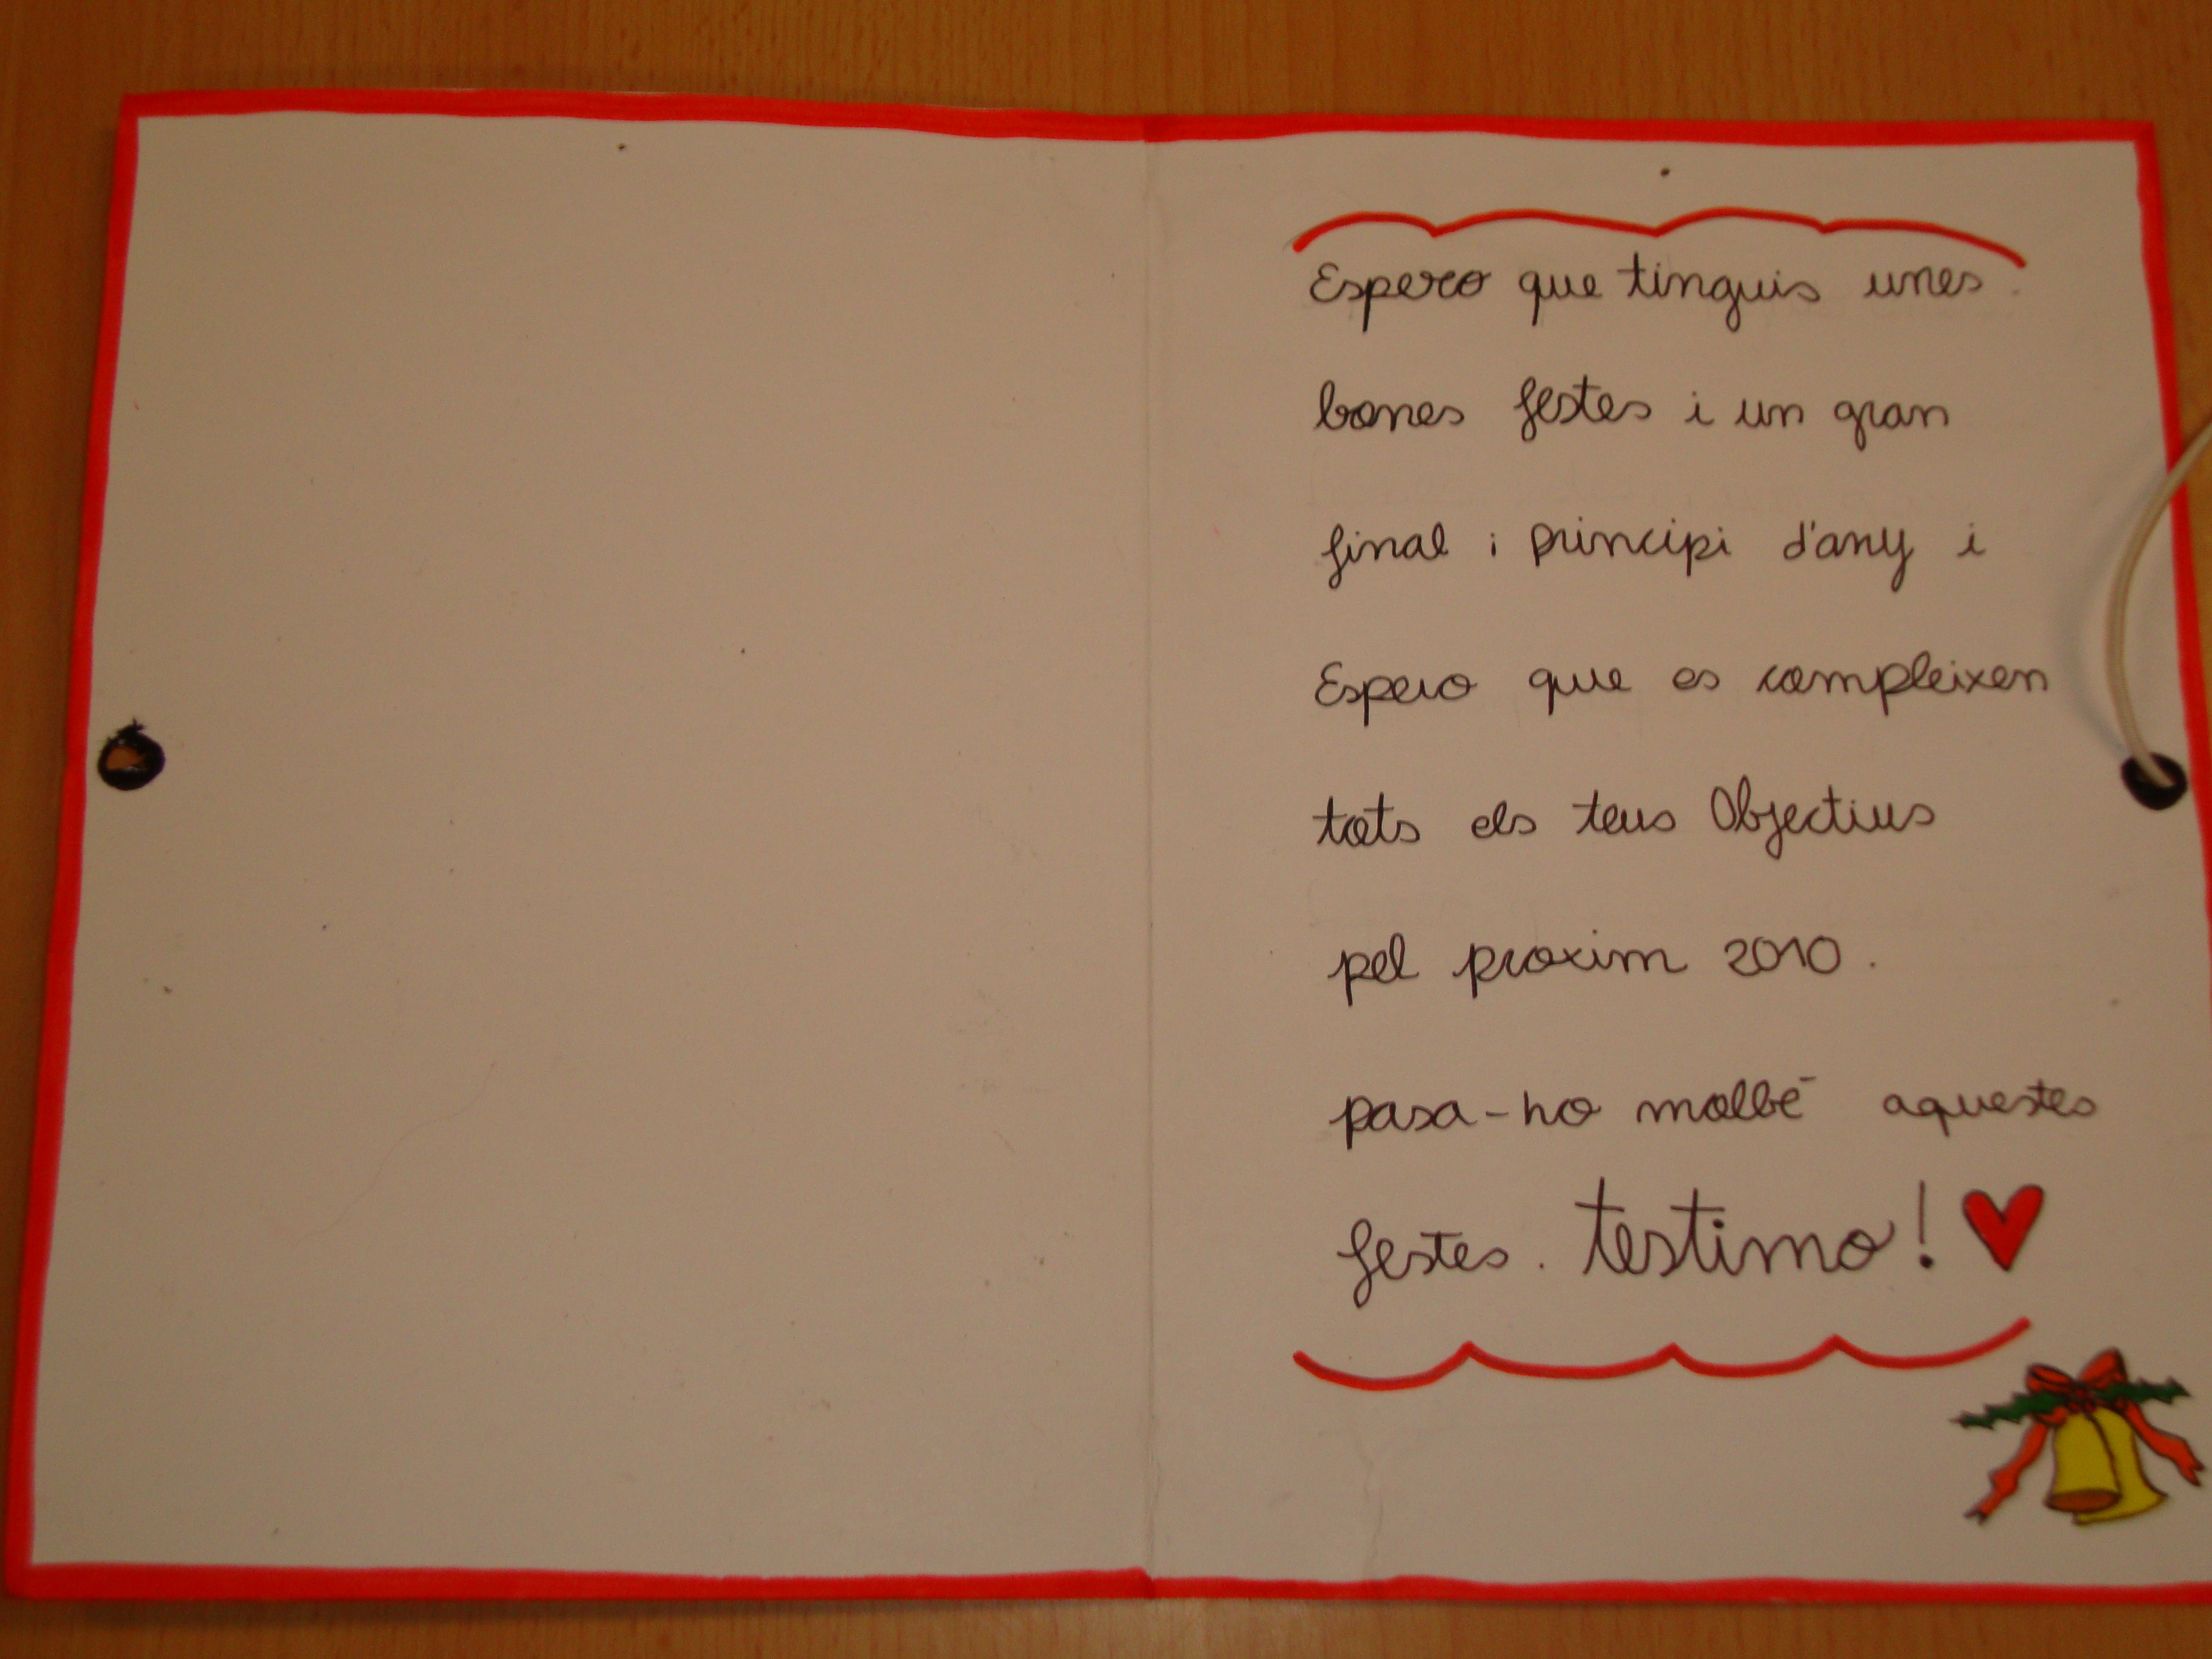 Espero que tinguis unes
bones festes i un gran
final i principi d'any i
Espero que es compleixen
tots els teus Objectius
pel proxim 2010.
pasa-ho molbé aquestes
festes. testimo!